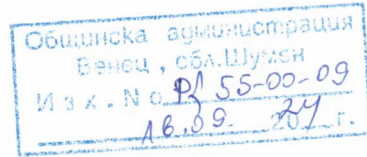 Общинска администрация
Венец, обл.Шумен
Изх. No РД 55-00-09
16.09. 2024 г.